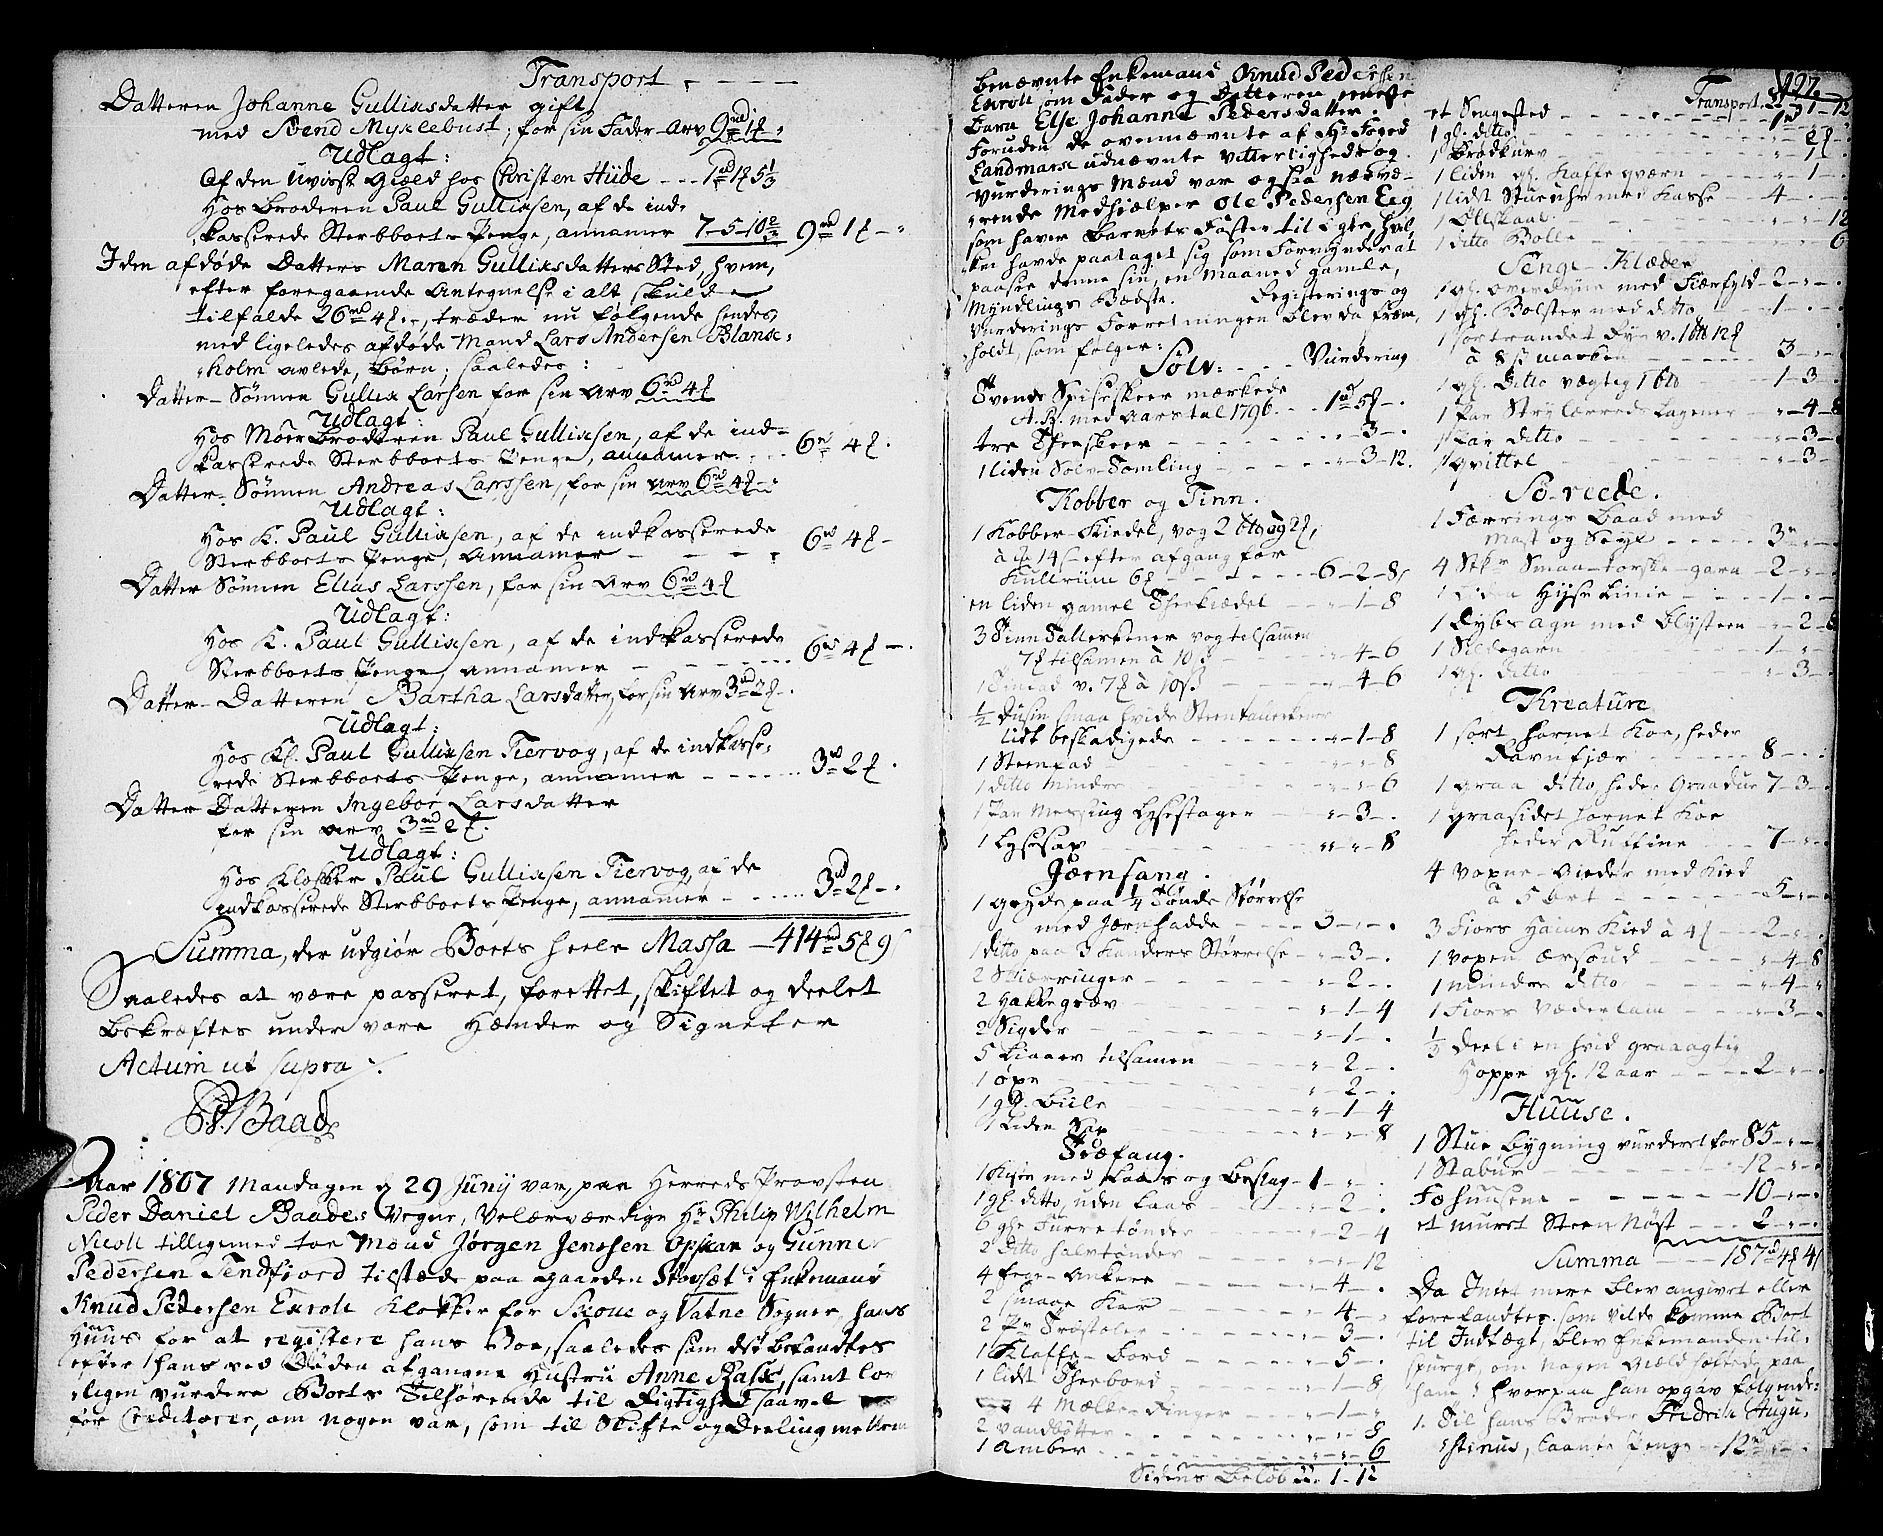 Transport
Datteren Johanne Gulliksdatter gift
med Svend Myklebust, for sin Fader-Arv 9rd 1f
Udlagt:
Af den uvisse Giæld hos Christen Hüde - - - 1rd 1f 5 1/3
Hos Broderen Paul Gulliksen, af de ind-
kasserede Sterbboets Penge, annamer 7-5-10 2/3 9rd 1f -
I den afdøde Datters Maren Gulliksdatters Sted, hvem,
efter foregaaende Antegnelse i alt skulde
tilfalde 26rd 4f -, træder nu følgende hendes
med ligeledes afdøde Mand Lars Andersen Blanke-
holm avlede, Børn, saaledes:
Datter-Sønnen Gullik Larsen for sin Arv 6rd 4f
Udlagt:
Hos Moer Broderen Paul Gulliksen, af de ind-
kasserede Sterbboets Penge, annamer - - - 6rd 4f -
Datter-Sønnen Andreas Larssen, for sin Arv 6rd 4f -
Udlagt:
Hos K. Paul Gulliksen, af de indkasserede
Sterbboets Penge, Annamer - - - - 6rd 4f -
Datter Sønnen Elias Larssen, for sin Arv 6rd 4f
Udlagt:
Hos K. Paul Gulliksen, af de indkasserede
Sterbboets Penge, annamer - - - - 6rd 4f -
Datter-Datteren Bartha Larsdatter, for sin Arv 3rd 2f -
Udlagt:
Hos Kl. Paul Gulliksen Tiervog, af de indkasse-
rede Sterbboets Penge, annamer - - - - 3rd 2f -
Datter Datteren Ingebor Larsdatter
for sin Arv 3rd 2f.
Udlagt:
Hos Klokker Paul Gulliksen Tiervog, af de
indkasserede Sterbboets Penge, annamer - - - 3rd 2f -
Summa, der udgiør Boets heele Massa - 414rd 5f 9
Saaledes at være passeret, forettet, skiftet og deelet
bekræftes under vore Hænder og Signeter
Actum ut supra
PD. Baade
Aar 1807 Mandagen d 29 Junij var, paa Herreds Provsten
Peder Daniel Baades Vegne, Velærværdige Hr Philip Wilhelm
Nicoll tilligemed toe Mænd Jørgen Jenssen Opskar og Gunner
Pedersen Tendfiord tilstæde paa Gaarden Støvset i Enkemand
Knud Pedersen Exroll Klokker for Skoue og Vatne Sogner, hans
Huus for at registere hans Boe, saaledes som det befandtes
efter hans ved Døden afgangne Hustru Anne Rask, samt lov-
ligen vurdere Boets Tilhørende til Rigtighed saavel
for Creditorer, om nogen var, som til Skifte og Deeling mellem
benævnte Enkemand Knud Pedersen
Exroll som Fader og Datteren eeneste
Barn Else Johanna Pedersdatter.
Foruden de ovennævnte af Hr Foged
Landmark udnævnte Vitterligheds og
Vurderings Mænd var ogsaa nærvæ-
rende Medhielper Ole Pedersen Eeg
som haver Barnets Faster til Egte, hvil-
ken havde paataget sig som Formynder at
paasee denne sin, en Maaned gamle,
Myndlings Bedste. Registerings og
Vurderings Forretningen blev da fræm-
holdt, som følger:
Sølv: - - - Vurdering
Svends Spiseskeer mærkede
A.R. med Aarstal 1796 - - - 1rd 5f -
tre Theeskeer - - - - - 3 -
1 liden Sølv-Samling - - - - - 3-12
Kobber og Tinn.
1 Kobber-Kiedel, vog 2 Bog 2f,
à 14f efter afgang for
Kullerüm 6f - - - - 6-2-8
en liden gamel Theekiedel - - - 1-8
3 Tinn Tallerkener vog tilsammen
7f tilsamen à 10f - - - - 4-6
1 Tinfad v. 7f à 10f - - - - 4-6
1/2 Dusin smaa hvide Steentallerkener
lidt beskadigede - - - - - 1-8
1 Steenfad - - - - - 8
1 ditto mindre - - - - - 6
1 Par Messing Lysestager - - - - 3 -
1 Lysesax - - - - - 8
Jærnfang.
1 Gryde paa 1/4 Tønde Størrelse
med Jærnhadde - - - - 3 - -
1 ditto paa 3 Kanders Størrelse - - 3 -
2 Skiærringer - - - - - 2 -
2 Hakkegrev - - - - - 1-4
2 Sigder - - - - - 1 -
5 Liaaer tilsamen - - - - 2 -
1 øxe - - - - - 2 -
1 gl. Biile - - - - - 1-4
1 Liden Sax - - - - - 8
Træfang.
1 Kiste med Laas og Beslag - 1 - -
1 gl. ditto, uden Laas - - - - 2 -
6 gle Tørretønder - - - - 2-4
2 ditto halvtønder - - - - 12
4 Fæe-Ankere - - - - 4 -
2 smaae Kar - - - - 4 -
2 Træstoler - - - - 3 -
1 Klaffe-Bord - - - - 5 -
1 lidt Theebord - - - - 1-8
4 Mælke Ringer - - - 1 -
2 Vandbøtter - - - - 8
1 Amber - - - - 6
Sidens Beløb 22-1-12
427.
Transport 22-1-12
et Sengested - - - - - 1rd -
1 gl. ditto - - - - - 2f
1 Brødkurv - - - - - 1 -
1 liden gl. Kaffeqværn - - - - 1 -
1 lidt Stueuhr med Kasse - - 4 - -
1 Ølskaal - - - - - 12
1 ditto Bolle - - - - - 6
Senge-Klæder
1 gl. Overdyne med Fiærfyld - 2 - -
1 gl. Bolster med ditto - - - 1 - -
1 sortrandet Dyne v. 1 B 12f
à 8f marken - - - - 3 - -
1 gl. Ditto vægtig 1 B - - - 1-3 -
1 Par Strylærreds Lagener - - 4-8
1 Par ditto - - - - 3 -
1 Qvittel - - - - 3 -
Sø-reede.
1 Færrings Baad med
Mast og Seyl - - - - 3rd - -
4 Stkr Smaa-torske-garn - 2 - -
1 Liden Hyse Linie - - - 1 - -
1 Dybsagn med Blysteen - - 2-8
1 Sildegarn - - - - 1 - -
1 gl. ditto - - - - 3 -
Kreature
1 sort hornet Koe, heder
Ravnfiær - - - - 8 - -
1 graa ditto, heder Graadue 7-3 -
1 graasidet hornet Koe
heder Rustine - - - 7 - -
4 voxne Bieder med Kied
à 5 ort - - - - 5 - -
3 Fiors Haine Kied à 4f - - 2 - -
1 voxen Ærsoud - - - - 4-8
1 mindre ditto - - - - 4 -
1 Fiors Væderlam - - - - 3 -
1/3 Deel i en hvid graaagtig
Hoppe gl. 12 aar - - - 2 - -
Huuse.
1 Stue bygning vurderet for 85 - -
1 Stabur - - - - 12 - -
Fæhuusene - - - - 10 - -
et muret Steen Nøst - - - 2 - -
Summa - - - 187rd 4f 4
Da Intet mere blev angivet eller
forefandtes, som vilde komme Boet
til Indtægt, blev Enkemanden til-
spurgt, om nogen Giæld hæftede paa
ham; hvorpaa han opgav følgende:
1. Til hans Broder Fredrik Augu-
stinus, laante Penge - 12rd - -